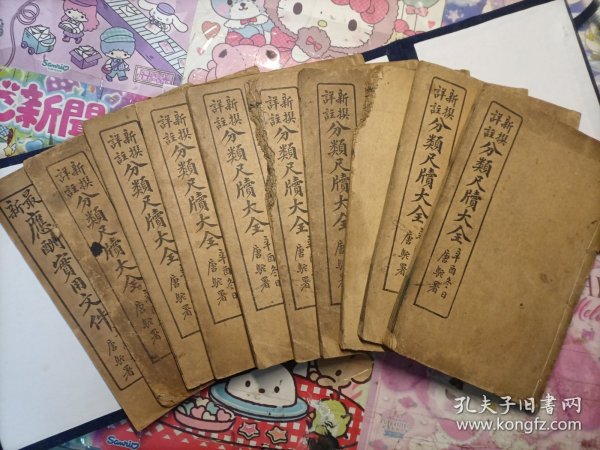 最新應酬實用文件
唐駝署
新撰詳註分類尺牘大全
唐駝署
新撰詳註分類尺牘大全
唐駝署
新撰詳註分類尺牘大全
唐駝署
新撰詳註分類尺牘大全
辛酉冬日
唐駝署
新撰詳註分類尺牘大全
唐駝署
新撰詳註分類尺牘大全
唐駝署
新撰詳註分類尺牘大全
辛酉冬日
唐駝署
新撰詳註分類尺牘大全
辛酉冬日
唐駝署
新聞
Sanrio
Sanrio
孔夫子旧书网
www.kongfz.com